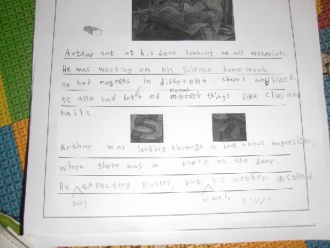 Arthur sat at his desk looking at all materials.
He was working on his science home work.
He had magnets in different shaes and sizes.
He also had lot's of metal things like clips and
nails
Arthur was looking through a book about magnetism,
when there was a knock at the door.
He expecting Buster, but his mother instead.
was it was